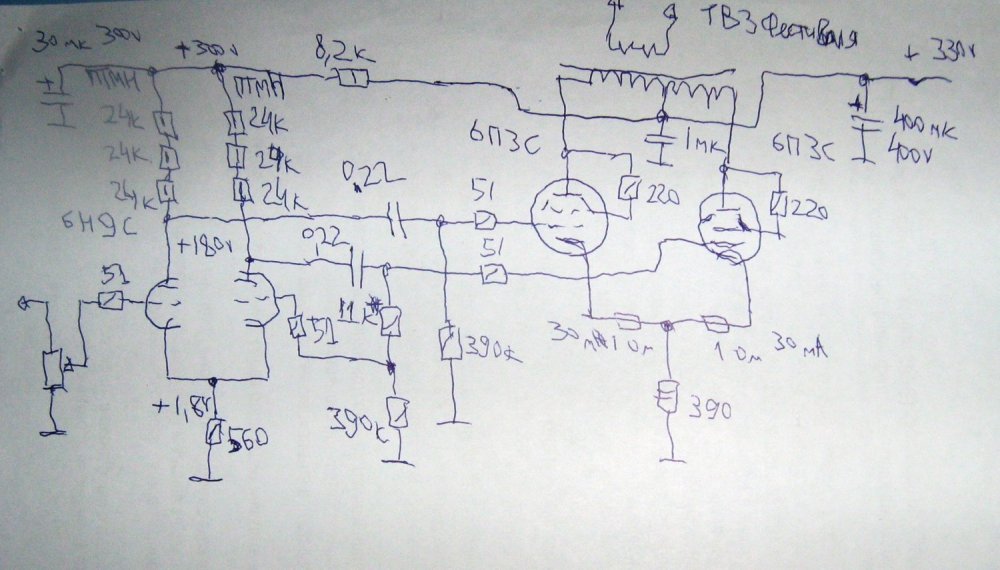 30 мк 300v
+300v
8,2к
ТВЗ Фестиваля
+ 330v
ПТМН
ПТМН
24к
24к
24к
24к
24к
24к
6Н9С
+180v
0,22
0,22
6П3С
1мк
6П3С
400мк
400v
220
220
51
51
51
51
11к*
390к
390к
+1,8v
560
30мА
1 Ом
1 Ом
30мА
390